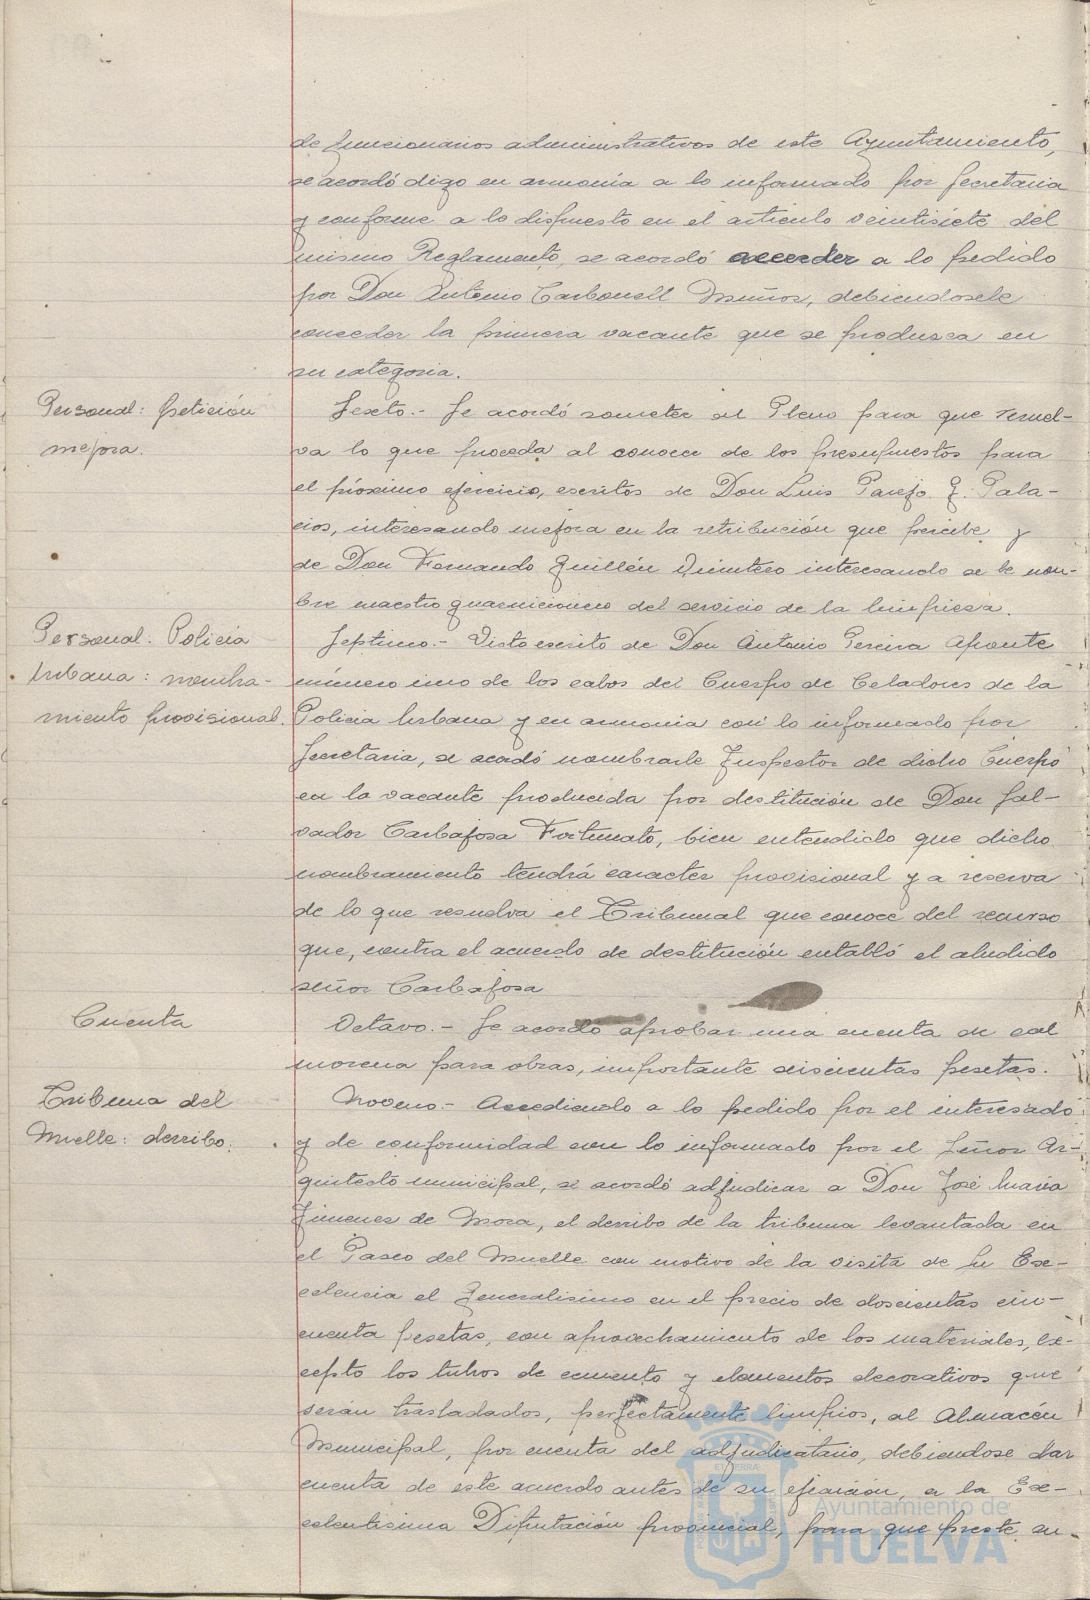 de funcionarios administrativos de este Ayuntamiento,
se acordó digo en armonía a lo informado por Secretaria
y conforme a lo dispuesto en el articulo veintisiete del
mismo Reglamento, se acordó acceder a lo pedido
por Don Antonio Carbonell Muñoz, debiendosele
conceder la primera vacante que se produzca en
su categoria.
Personal: petición
mejora.
Sexto.- Se acordó someter al Pleno para que resuel-
va lo que proceda al conocer de los presupuestos para
el próximo ejercicio, escritos de Don Luis Parejo G. Pala-
cios, interesando mejora en la retribución que percibe y
de Don Fernando Guillén Quintero interesando se le nom-
bre maestro guarnicionero del servicio de la limpieza.
Personal. Policía
Urbana: nombra-
miento provisional.
Septimo.- Visto escrito de Don Antonio Pereira Aponte
número uno de los cabos del Cuerpo de Celadores de la
Policia Urbana y en armonia con lo informado por
Secretaria, se acordó nombrarle Inspector de dicho Cuerpo
en la vacante producida por destitución de Don Sal-
vador Carbajosa Fortunato, bien entendido que dicho
nombramiento tendrá caracter provisional y a reserva
de lo que resuelva el Tribunal que conoce del recurso
que, contra el acuerdo de destitución entabló el aludido
señor Carbajosa
Cuenta
Octavo.- Se acordo aprobar una cuenta de cal
morena para obras, importante seiscientas pesetas.
Tribuna del
Muelle: derribo.
Noveno.- Accediendo a lo pedido por el interesado
y de conformidad con lo informado por el Señor Ar-
quitecto municipal, se acordó adjudicar a Don José Maria
Jimenez de Mora, el derribo de la tribuna levantada en
el Paseo del Muelle con motivo de la visita de Su Ex-
celencia el Generalisimo en el precio de doscientas cin-
cuenta pesetas, con aprovechamiento de los materiales, ex-
cepto los tubos de cemento y elementos decorativos que
serán trasladados, perfectamente limpios, al Almacén
Municipal, por cuenta del adjudicatario, debiendose dar
cuenta de este acuerdo antes de su ejecución, a la Ex-
celentisima Diputación provincial, para que preste su
Ayuntamiento de
HUELVA